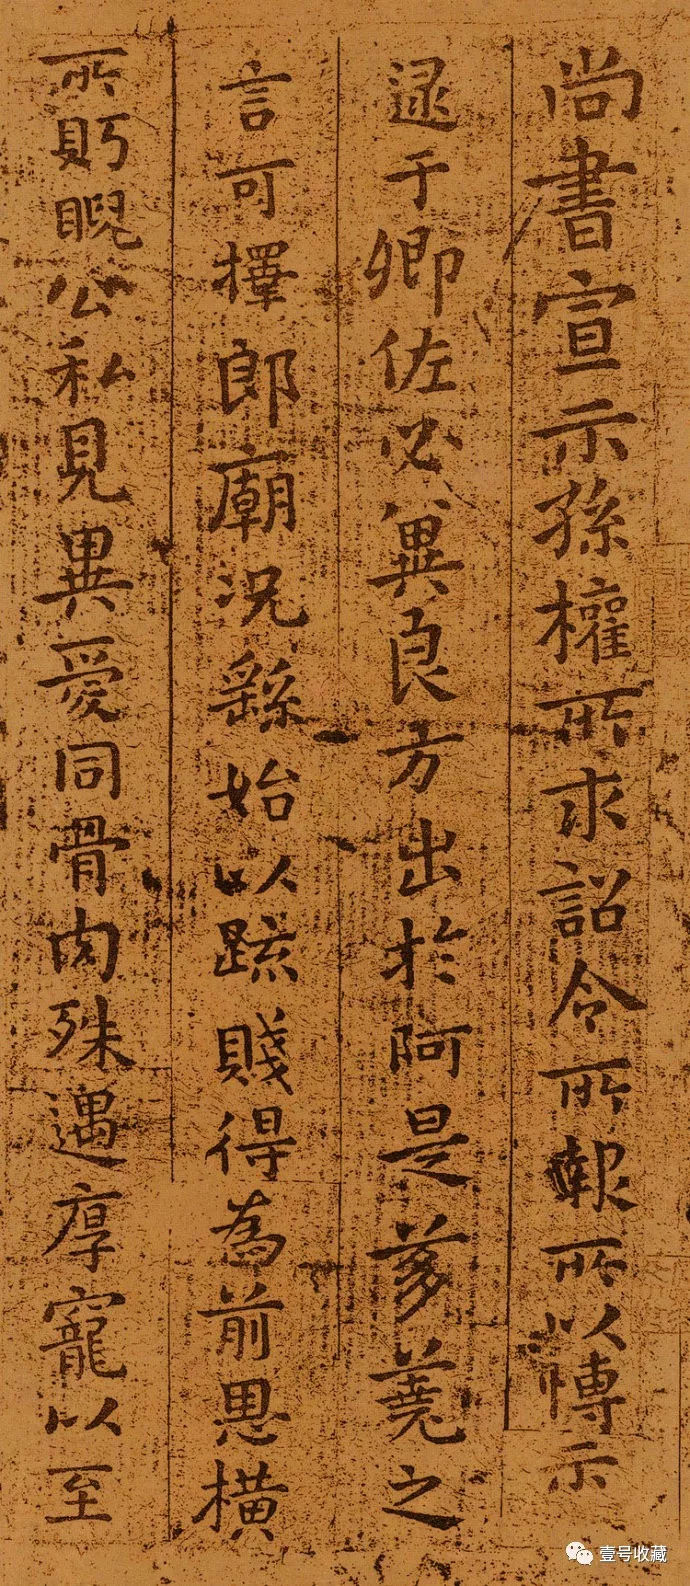 尚書宣示孫權所求詔令所報所以博示
逮于卿佐必異良方出於阿是芻蕘之
言可擇郎廟況繇始以疏賤得為前恩橫
所眄睨公私見異愛同骨肉殊遇厚寵以至
壹号收藏